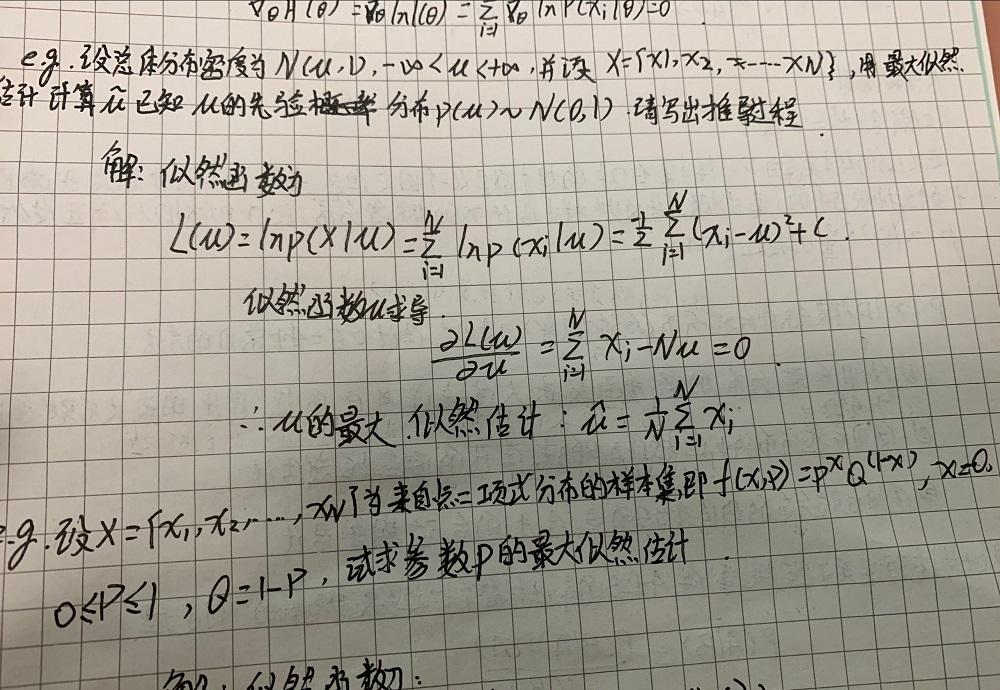 ∇θH(θ) = ∇θ ln l(θ) = Σ_{i=1} ∇θ ln P(xi|θ) = 0
e.g. 设总体分布密度为 N(μ,1), -∞<μ<+∞, 并设 X={x1, x2, ... xN}, 用最大似然
估计计算 μ̂ 已知 μ的先验 分布 p(μ)~N(0,1) 请写出推导过程
解: 似然函数为
L(μ) = ln p(X|μ) = Σ_{i=1}^{N} ln p(xi|μ) = -1/2 Σ_{i=1}^{N} (xi-μ)²+C.
似然函数μ求导.
∂L(μ)/∂μ = Σ_{i=1}^{N} xi - Nμ = 0.
∴ μ的最大似然估计: μ̂ = 1/N Σ_{i=1}^{N} xi
e.g. 设X={x1, x2, ..., xN}为来自点二项式分布的样本集, 即 f(x,p) = P^x Q^(1-x), x=0,
0≤P≤1, Q=1-P, 试求参数P的最大似然估计.
解: 似然函数为: